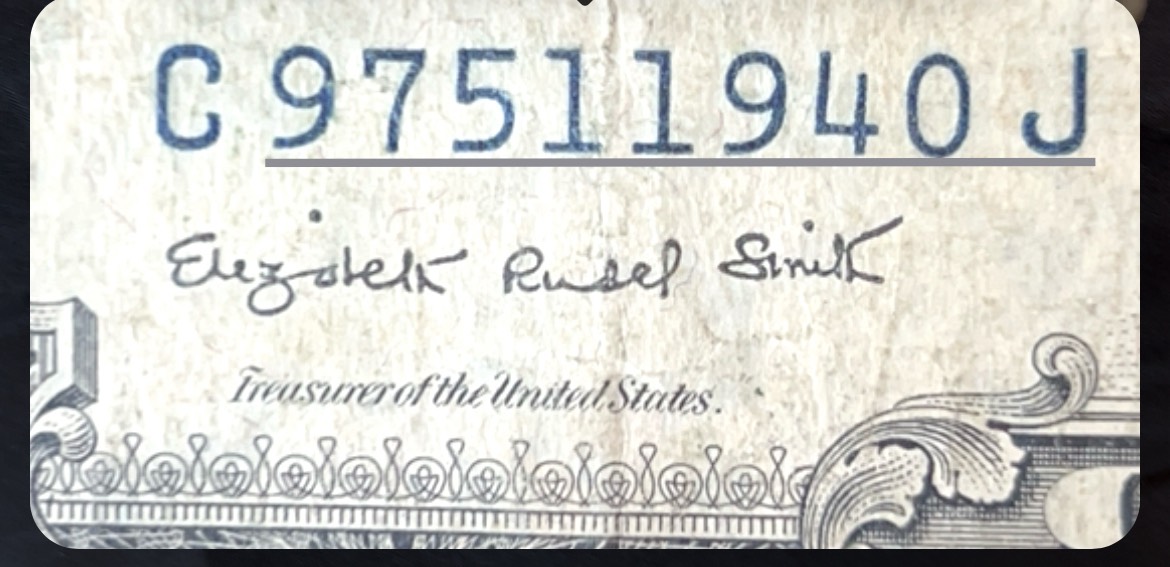 C97511940J
Elizabeth Rudel Smith
Treasurer of the United States.